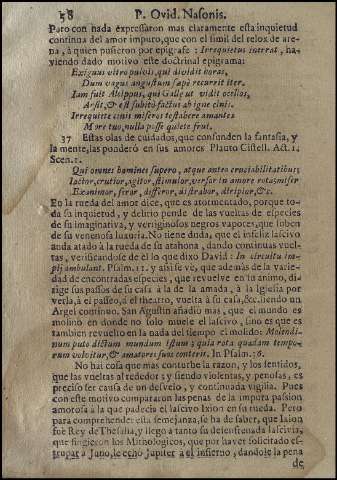 58 P. Ovid. Nasonis.
Pero con nada expressaron mas claramente esta inquietud
continua del amor impuro, que con el simil del relox de are-
na, à quien pusieron por epigrafe: Irrequietus interrat, ha-
viendo dado motivo este doctrinal epigrama:
Exiguus vitro pulvis, qui dividit horas,
Dum vagus angustum sæpè recurrit iter.
Iam fuit Alcippus, qui Gallæ ut vidit ocellos,
Arsit, & est subitò factus ab igne cinis.
Irrequiete cinis miseros testabere amantes
More tuo, nulla posse quiete frui.
37 Estas olas de cuidados, que confunden la fantasia, y
la mente, las ponderò en sus amores Plauto Cistell. Act. 1.
Scen. 1.
Qui omnes homines supero, atque anteo cruciabilitatibus
Iactor, crutior, agitor, stimulor, versor in amore rota, miser
Exanimor, feror, differor, distrahor, diripior, &c.
En la rueda del amor dice, que es atormentado, porque to-
da su inquietud, y delirio pende de las vueltas de especies
de su imaginativa, y vertiginosos negros vapores, que suben
de su venenosa luxuria. No tiene duda, que el infeliz lascivo
anda atado à la rueda de su atahona, dando continuas vuel-
tas, verificandose de èl lo que dixo David: In circuitu im-
pij ambulant. Psalm. 11. y assi se ve, que además de la varie-
dad de encontradas especies, que revuelve en su animo, di-
rige sus passos de su casa à la de la amada, à la Iglesia por
verla, à el passeo, à el theatro, vuelta à su casa, &c. siendo un
Argel continuo. San Agustin añadiò mas, que el mundo es
molino en donde no solo muele el lascivo, sino es que es
tambien revuelto en la nada del tiempo el molido: Molendi-
num puto dictum mundum istum; quia rota quadam tempo-
rum volvitur, & amatores suos conterit. In Psalm. 36.
No hai cosa que mas conturbe la razon, y los sentidos,
que las vueltas al rededor; y siendo violentas, y penosas, es
preciso ser causa de un desvelo, y continuada vigilia. Pues
con este motivo compararon las penas de la impura passion
amorosa à la que padecia el lascivo Ixion en su rueda. Pero
para comprehender esta semejanza, se ha de saber, que Ixion
fue Rey de Thesalia, y llegò à tanto su desenfrenada lascivia,
que fingieron los Mithologicos, que por haver solicitado es-
trupar à Juno, le echò Jupiter à el infierno, dandole la pena
de